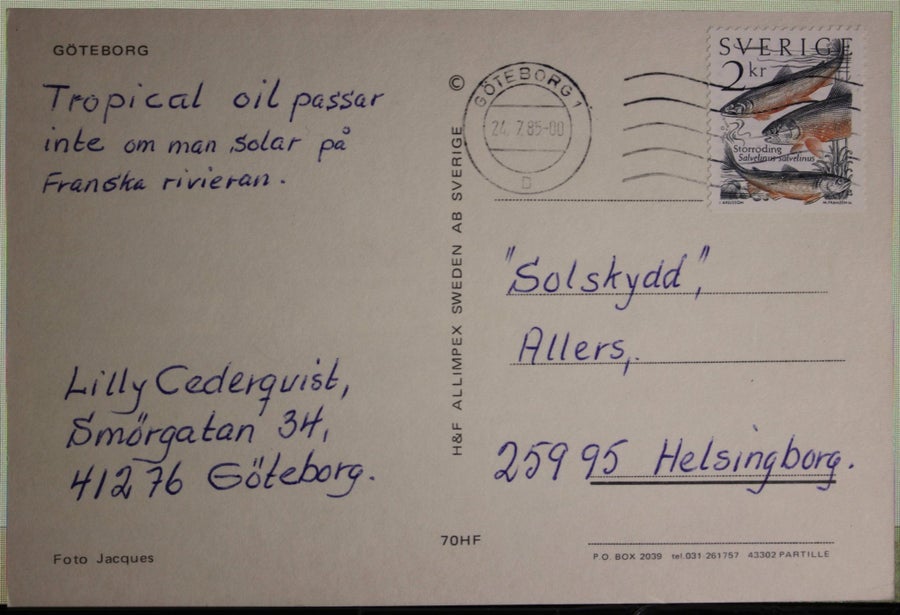 GÖTEBORG
Tropical oil passar
inte om man solar på
Franska rivieran.
Lilly Cederquist,
Smörgatan 34,
412 76 Göteborg.
Foto Jacques
© H&F ALLIMPEX SWEDEN AB SVERIGE
70HF
GÖTEBORG 1
24. 7. 85-00
D
SVERIGE
2 kr
Storröding
Salvelinus salvelinus
"Solskydd",
Allers,
259 95 Helsingborg.
P.O. BOX 2039 tel.031-261757 43302 PARTILLE